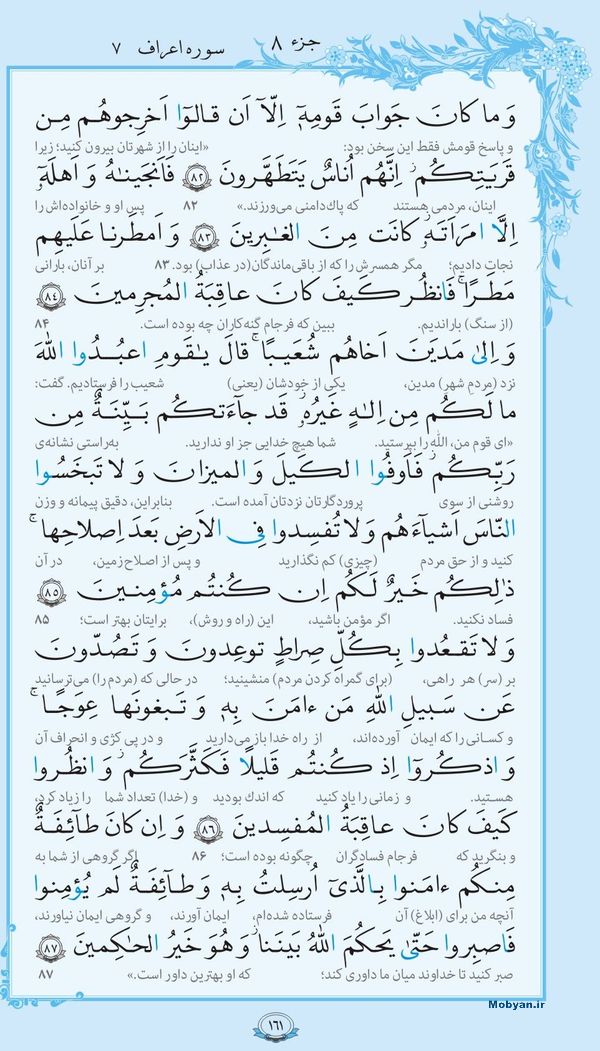 جزء ۸ سوره اعراف ۷
وَ ما كانَ جَوابَ قَومِهِٓ اِلّآ اَن قالوٓا اَخرِجوهُم مِن
و پاسخ قومش فقط این سخن بود: «اینان را از شهرتان بیرون کنید؛ زیرا
قَريَتِكُم ۖ اِنَّهُم اُناسٌ يَتَطَهَّرونَ ﴿٨٢﴾ فَاَنجَيناهُ وَ اَهلَهٓ
اینان، مردمی هستند که پاک‌دامنی می‌ورزند.» ۸۲ پس او و خانواده‌اش را
اِلَّا امرَاَتَهٗ كانَت مِنَ الغابِرينَ ﴿٨٣﴾ وَ اَمطَرنا عَلَيهِم
نجات دادیم؛ مگر همسرش را که از باقی‌ماندگان(در عذاب) بود. ۸۳ بر آنان، بارانی
مَطَرًا ۖ فَانظُر كَيفَ كانَ عاقِبَةُ المُجرِمينَ ﴿٨٤﴾
(از سنگ) باراندیم. ببین که فرجام گنه‌کاران چه بوده است. ۸۴
وَ اِلىٰ مَديَنَ اَخاهُم شُعَيبًا ۚ قالَ يٰقَومِ اعبُدُوا اللهَ
نزد (مردمِ شهرِ) مدین، یکی از خودشان (یعنی) شعیب را فرستادیم. گفت:
ما لَكُم مِن اِلـٰهٍ غَيرُهٗ ۖ قَد جآءَتكُم بَيِّنَةٌ مِن
«ای قوم من، اللّه را بپرستید. شما هیچ خدایی جز او ندارید. به‌راستی نشانه‌ی
رَبِّكُم ۖ فَاَوفُوا الكَيلَ وَ الميزانَ وَ لا تَبخَسُوا
روشنی از سوی پروردگارتان نزدتان آمده است. بنابراین، دقیق پیمانه و وزن
النّاسَ اَشيآءَهُم وَ لا تُفسِدوا فِى الاَرضِ بَعدَ اِصلاحِها ۚ
کنید و از حق مردم (چیزی) کم نگذارید و پس از اصلاح زمین، در آن
ذٰلِكُم خَيرٌ لَكُم اِن كُنتُم مُؤمِنينَ ﴿٨٥﴾
فساد نکنید. اگر مؤمن باشید، این (راه و روش)، برایتان بهتر است؛ ۸۵
وَ لا تَقعُدوا بِكُلِّ صِراطٍ توعِدونَ وَ تَصُدّونَ
بر (سرِ) هر راهی، (برای گمراه کردن مردم) منشینید؛ در حالی که (مردم را) می‌ترسانید
عَن سَبيلِ اللهِ مَن ءامَنَ بِهٖ وَ تَبغونَها عِوَجًا ۚ
و کسانی را که ایمان آورده‌اند، از راه خدا باز می‌دارید و در پی کژی و انحراف آن
وَ اذكُروٓا اِذ كُنتُم قَليلًا فَكَثَّرَكُم ۖ وَ انظُروا
هستید. و زمانی را یاد کنید که اندک بودید و (خدا) تعداد شما را زیاد کرد،
كَيفَ كانَ عاقِبَةُ المُفسِدينَ ﴿٨٦﴾ وَ اِن كانَ طآئِفَةٌ
و بنگرید که فرجام فسادگران چگونه بوده است؛ ۸۶ اگر گروهی از شما به
مِنكُم ءامَنوا بِالَّذىٓ اُرسِلتُ بِهٖ وَ طآئِفَةٌ لَم يُؤمِنوا
آنچه من برای (ابلاغ) آن فرستاده شده‌ام، ایمان آورند، و گروهی ایمان نیاورند،
فَاصبِروا حَتّىٰ يَحكُمَ اللهُ بَينَنا ۚ وَ هُوَ خَيرُ الحاكِمينَ ﴿٨٧﴾
صبر کنید تا خداوند میان ما داوری کند؛ که او بهترین داور است.» ۸۷
Mobyan.ir
۱۶۱